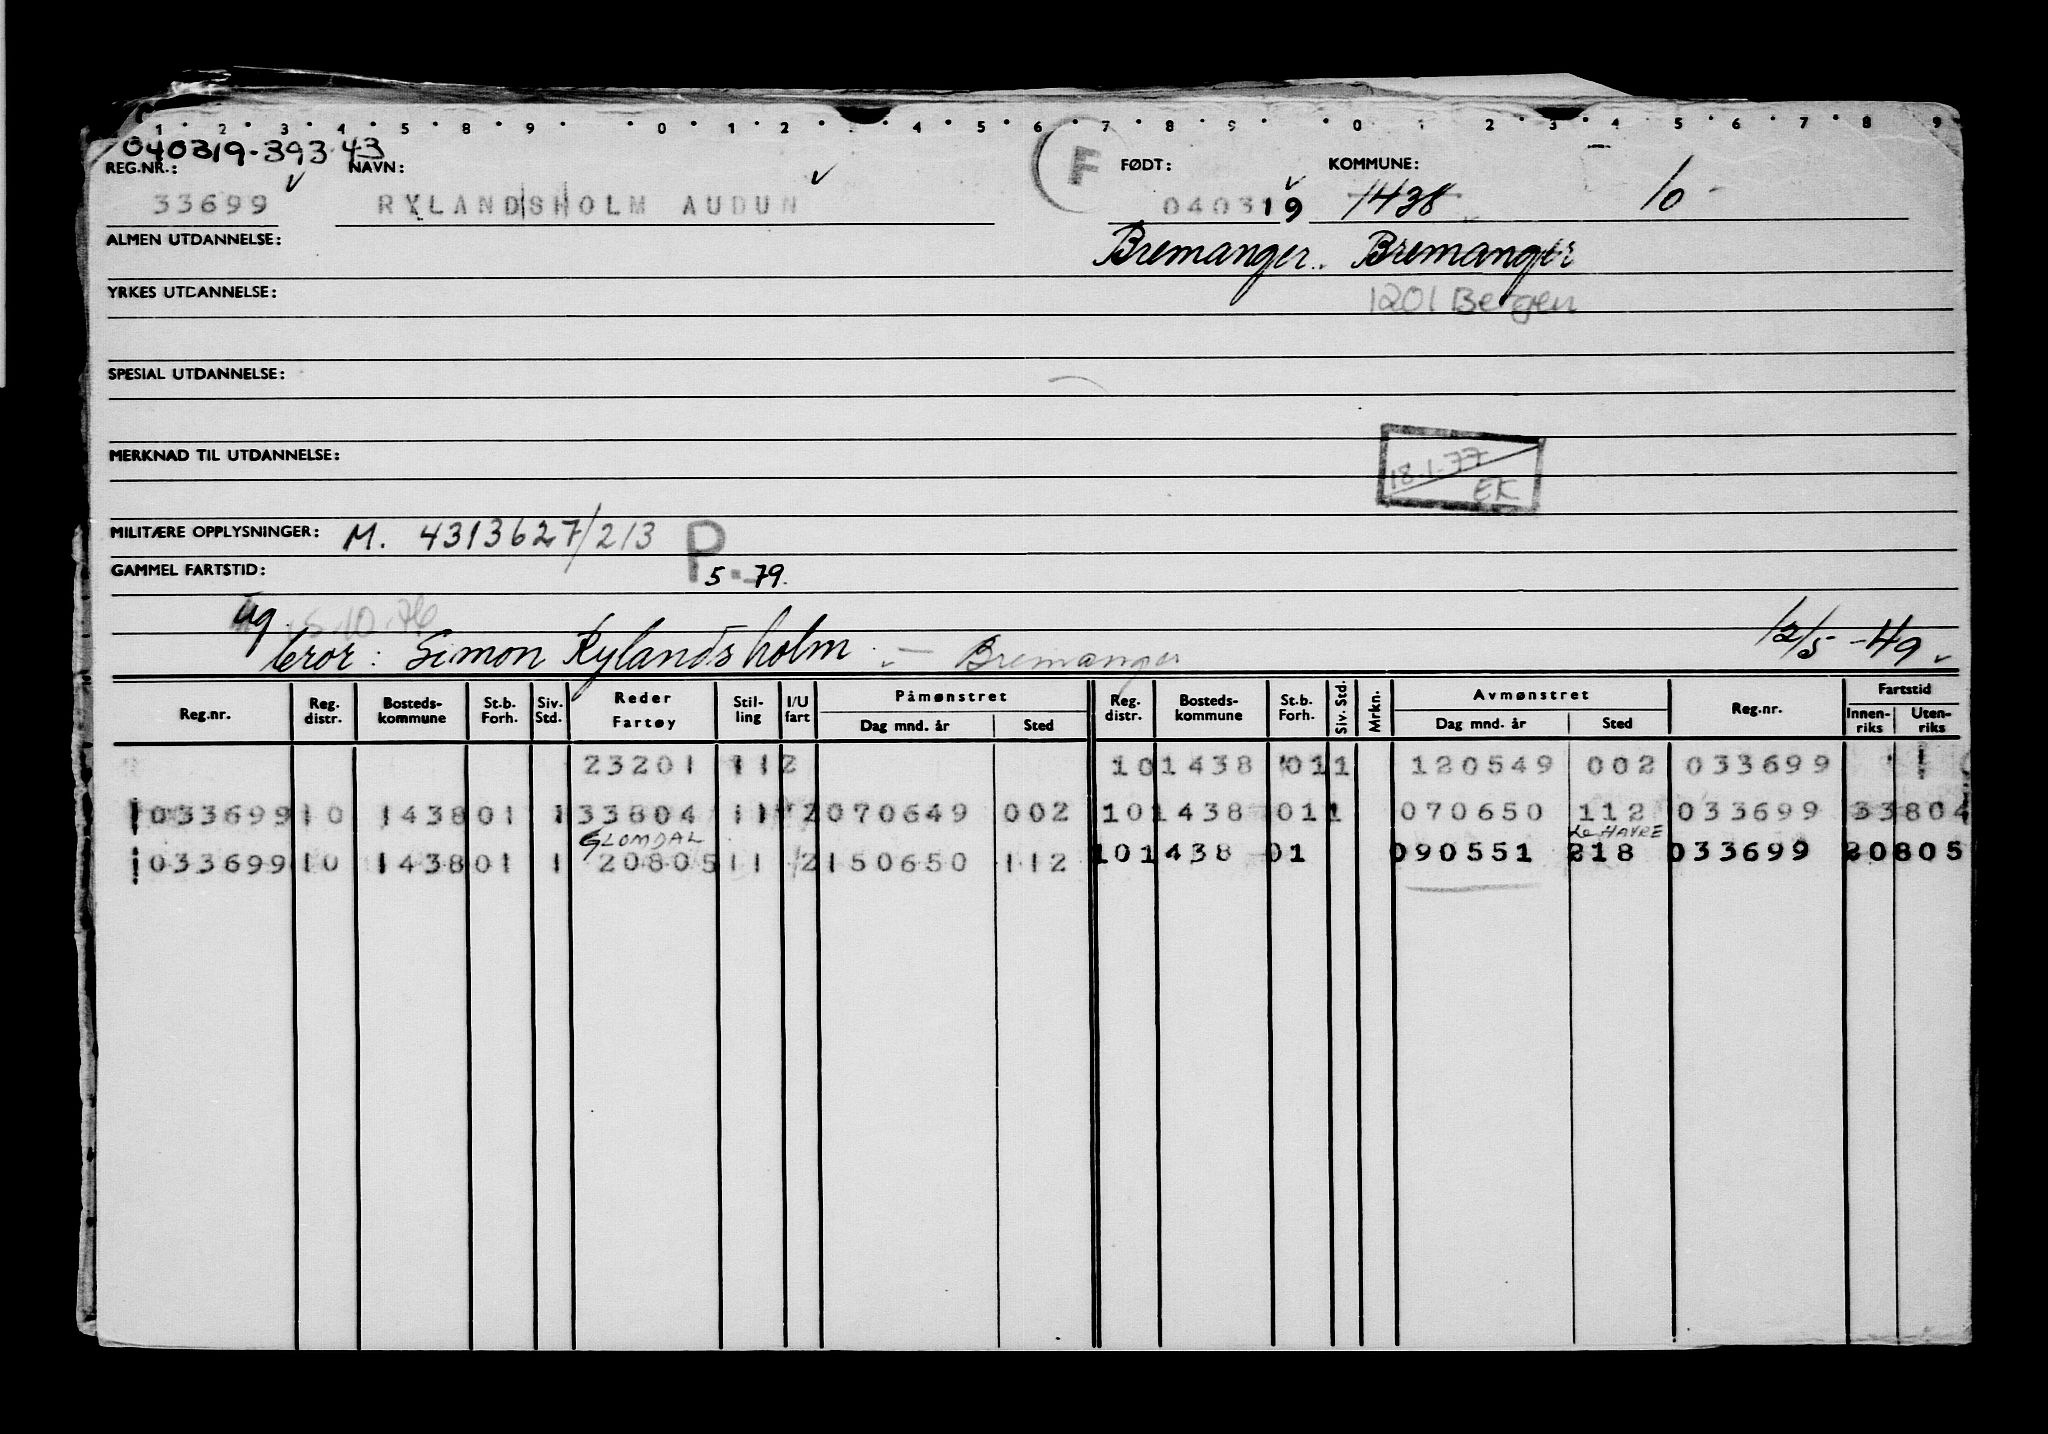 1 2 3 4 5 8 9 0 1 2 3 4 5 6 7 8 9 0 1 2 3 4 5 6 7 8 9
040319-393 43
REG.NR.: NAVN: F FØDT: KOMMUNE:
33699 RYLANDSHOLM AUDUN 040319 1438 10
ALMEN UTDANNELSE: Bremanger. Bremanger
YRKES UTDANNELSE: 1201 Bergen
SPESIAL UTDANNELSE:
MERKNAD TIL UTDANNELSE: 18.1.77 EK
MILITÆRE OPPLYSNINGER: M. 4313627/213 P
GAMMEL FARTSTID: 5-79.
ug. 5.10.76
bror: Simon Rylandsholm - Bremanger 12/5-49
Reg.nr. Reg. distr. Bosteds-kommune St.b. Forh. Siv. Std. Reder Fartøy Stil-ling I/U fart Påmønstret Dag mnd. år Sted Reg. distr. Bosteds-kommune St.b. Forh. Siv. Std. Mrkn. Avmønstret Dag mnd. år Sted Reg.nr. Fartstid Innen-riks Uten-riks
23201 11 2 10 1438 01 1 120549 002 033699
033699 10 1438 01 1 33804 11 2 070649 002 10 1438 01 1 070650 112 033699 33804
GLOMDAL Le HAVRE
033699 10 1438 01 1 20805 11 2 150650 112 10 1438 01 090551 218 033699 20805